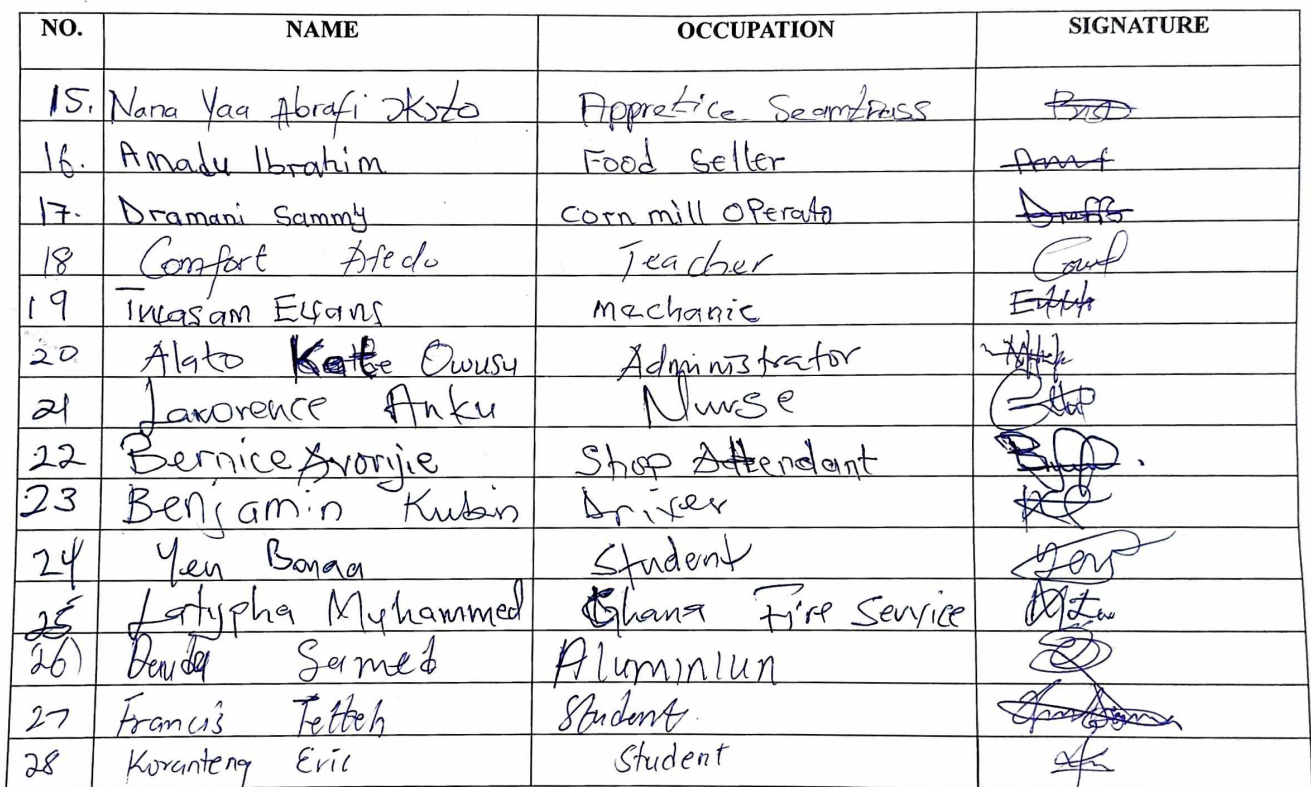 NO. NAME OCCUPATION SIGNATURE
15. Nana Yaa Abrafi Ɔkoto Appretice Seamtrass
16. Amadu Ibrahim Food Seller
17. Dramani Sammy corn mill OPerato
18 Comfort Afedo Teacher
19 Evans mechanic
20 Alato Kate Owusu Administrator
21 Laworence Anku Nurse
22 Bernice Avorijie Shop Attendant
23 Benjamin Kubin Driver
24 Yen Bonaa Student
25 Latypha Muhammed Ghana Fire Service
26) Dauda Samed Aluminiun
27 Francis Tetteh Student
28 Koranteng Eric Student